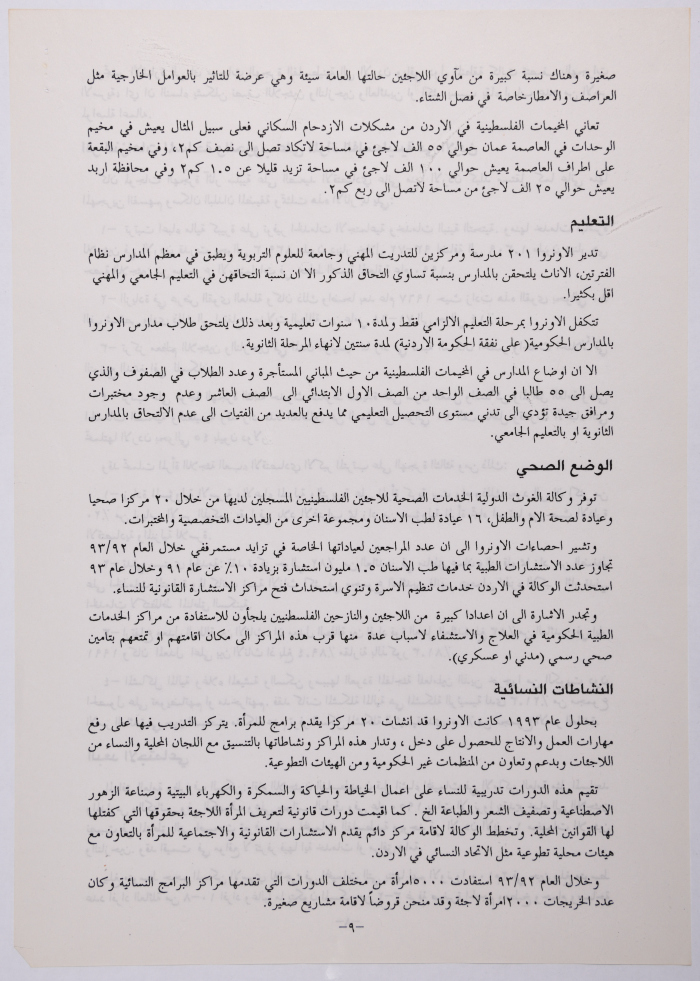 صغيرة وهناك نسبة كبيرة من مآوي اللاجئين حالتها العامة سيئة وهي عرضة للتاثير بالعوامل الخارجية مثل
العراصف والامطارخاصة في فصل الشتاء.
تعاني المخيمات الفلسطينية في الاردن من مشكلات الازدحام السكاني فعلى سبيل المثال يعيش في مخيم
الوحدات في العاصمة عمان حوالي ٥٥ الف لاجئ في مساحة لاتكاد تصل الى نصف كم٢، وفي مخيم البقعة
على اطراف العاصمة يعيش حوالي ١٠٠ الف لاجئ في مساحة تزيد قليلا عن ١.٥ كم٢ وفي محافظة اربد
يعيش حوالي ٢٥ الف لاجئ من مساحة لاتصل الى ربع كم٢.
التعليم
تدير الاونروا ٢٠١ مدرسة ومركزين للتدريت المهني وجامعة للعلوم التربوية ويطبق في معظم المدارس نظام
الفترتين، الاناث يلتحقن بالمدارس بنسبة تساوي التحاق الذكور الا ان نسبة التحاقهن في التعليم الجامعي والمهني
اقل بكثيرا.
تتكفل الاونروا بمرحلة التعليم الالزامي فقط ولمدة١٠ سنوات تعليمية وبعد ذلك يلتحق طلاب مدارس الاونروا
بالمدارس الحكومية( على نفقة الحكومة الاردنية) لمدة سنتين لانهاء المرحلة الثانوية.
الا ان اوضاع المدارس في المخيمات الفلسطينية من حيث المباني المستأجرة وعدد الطلاب في الصفوف والذي
يصل الى ٥٥ طالبا في الصف الواحد من الصف الاول الابتدائي الى الصف العاشر وعدم وجود مختبرات
ومرافق جيدة تؤدي الى تدني مستوى التحصيل التعليمي مما يدفع بالعديد من الفتيات الى عدم الالتحاق بالمدارس
الثانوية او بالتعليم الجامعي.
الوضع الصحي
توفر وكالة الغوث الدولية الخدمات الصحية للاجئين الفلسطينيين المسجلين لديها من خلال ٢٠ مركزا صحيا
وعيادة لصحة الام والطفل، ١٦ عيادة لطب الاسنان ومجموعة اخرى من العيادات التخصصية والمختبرات.
وتشير احصاءات الاونروا الى ان عدد المراجعين لعياداتها الخاصة في تزايد مستمرففي خلال العام ٩٣/٩٢
تجاوز عدد الاستشارات الطبية بما فيها طب الاسنان ١.٥ مليون استشارة بزيادة ١٠٪ عن عام ٩١ وخلال عام ٩٣
استحدثت الوكالة في الاردن خدمات تنظيم الاسرة وتنوي استحداث فتح مراكز الاستشارة القانونية للنساء.
وتجدر الاشارة الى ان اعدادا كبيرة من اللاجئين والنازحين الفلسطنيين يلجأون للاستفادة من مراكز الخدمات
الطبية الحكومية في العلاج والاستشفاء لاسباب عدة منها قرب هذه المراكز الى مكان اقامتهم او تمتعهم بتامين
صحي رسمي (مدني او عسكري).
النشاطات النسائية
بحلول عام ١٩٩٣ كانت الاونروا قد انشات ٢٠ مركزا يقدم برامج للمرأة. يتركز التدريب فيها على رفع
مهارات العمل والانتاج للحصول على دخل ، وتدار هذه المراكز ونشاطاتها بالتنسيق مع اللجان المحلية والنساء من
اللاجئات وبدعم وتعاون من المنظمات غير الحكومية ومن الهيئات التطوعية.
تقيم هذه الدورات تدريبية للنساء على اعمال الخياطة والحياكة والسمكرة والكهرباء البيتية وصناعة الزهور
الاصطناعية وتصفيف الشعر والطباعة الخ . كما اقيمت دورات قانونية لتعريف المرأة اللاجئة بحقوقها التي كفلتها
لها القوانين المحلية. وتخطط الوكالة لاقامة مركز دائم يقدم الاستشارات القانونية والاجتماعية للمرأة بالتعاون مع
هيئات محلية تطوعية مثل الاتحاد النسائي في الاردن.
وخلال العام ٩٣/٩٢ استفادت ٥٠٠٠امرأة من مختلف الدورات التي تقدمها مراكز البرامج النسائية وكان
عدد الخريجات ٢٠٠٠امرأة لاجئة وقد منحن قروضاً لاقامة مشاريع صغيرة.
-٩-